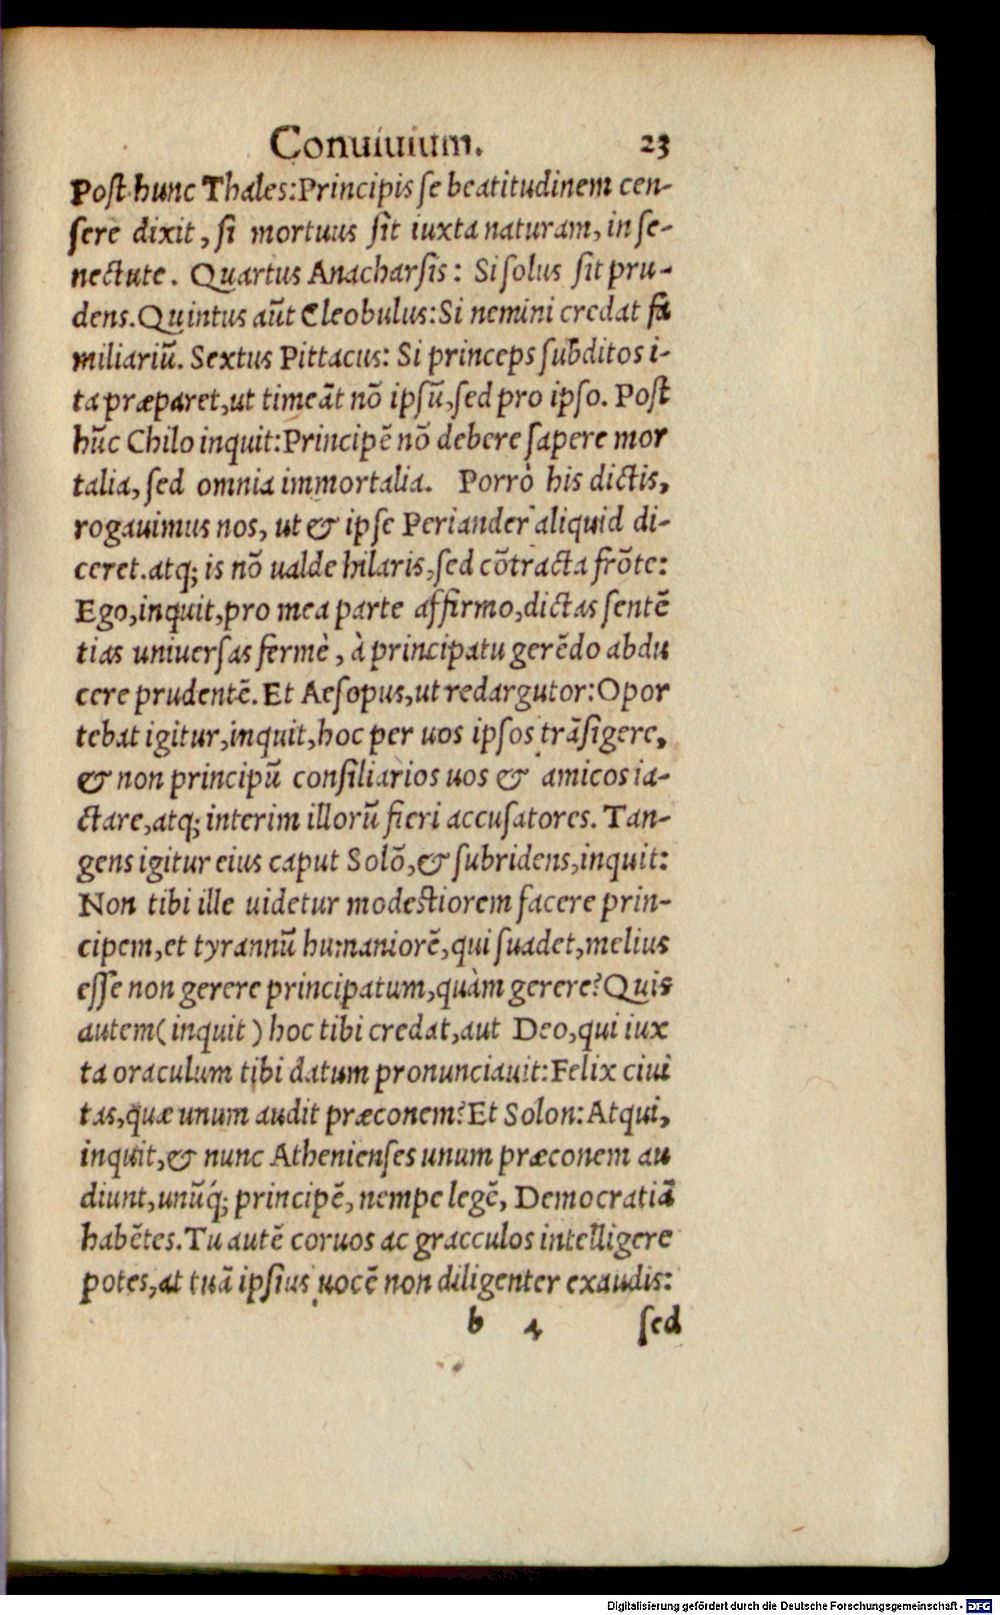 Conuiuium. 23
Post hunc Thales: Principis se beatitudinem cen-
sere dixit, si mortuus sit iuxta naturam, in se-
nectute. Quartus Anacharsis: Si solus sit pru-
dens. Quintus aūt Cleobulus: Si nemini credat fa
miliariū. Sextus Pittacus: Si princeps subditos i-
ta præparet, ut timeãt nõ ipsū, sed pro ipso. Post
hūc Chilo inquit: Principẽ nõ debere sapere mor
talia, sed omnia immortalia. Porrò his dictis,
rogauimus nos, ut & ipse Periander aliquid di-
ceret. atq; is nõ ualde hilaris, sed cõtracta frõte:
Ego, inquit, pro mea parte affirmo, dictas sentẽ
tias uniuersas fermè, à principatu gerẽdo abdu
cere prudentẽ. Et Aesopus, ut redargutor: Opor
tebat igitur, inquit, hoc per uos ipsos trãsigere,
& non principū consiliarios uos & amicos ia-
ctare, atq; interim illorū fieri accusatores. Tan-
gens igitur eius caput Solõ, & subridens, inquit:
Non tibi ille uidetur modestiorem facere prin-
cipem, et tyrannū humaniorẽ, qui suadet, melius
esse non gerere principatum, quàm gerere? Quis
autem (inquit) hoc tibi credat, aut Deo, qui iux
ta oraculum tibi datum pronunciauit: Felix ciui
tas, quæ unum audit præconem? Et Solon: Atqui,
inquit, & nunc Athenienses unum præconem au
diunt, unūq́; principẽ, nempe legẽ, Democratiã
habẽtes. Tu autẽ coruos ac gracculos intelligere
potes, at tuã ipsius uocẽ non diligenter exaudis:
b 4 sed
Digitalisierung gefördert durch die Deutsche Forschungsgemeinschaft - DFG